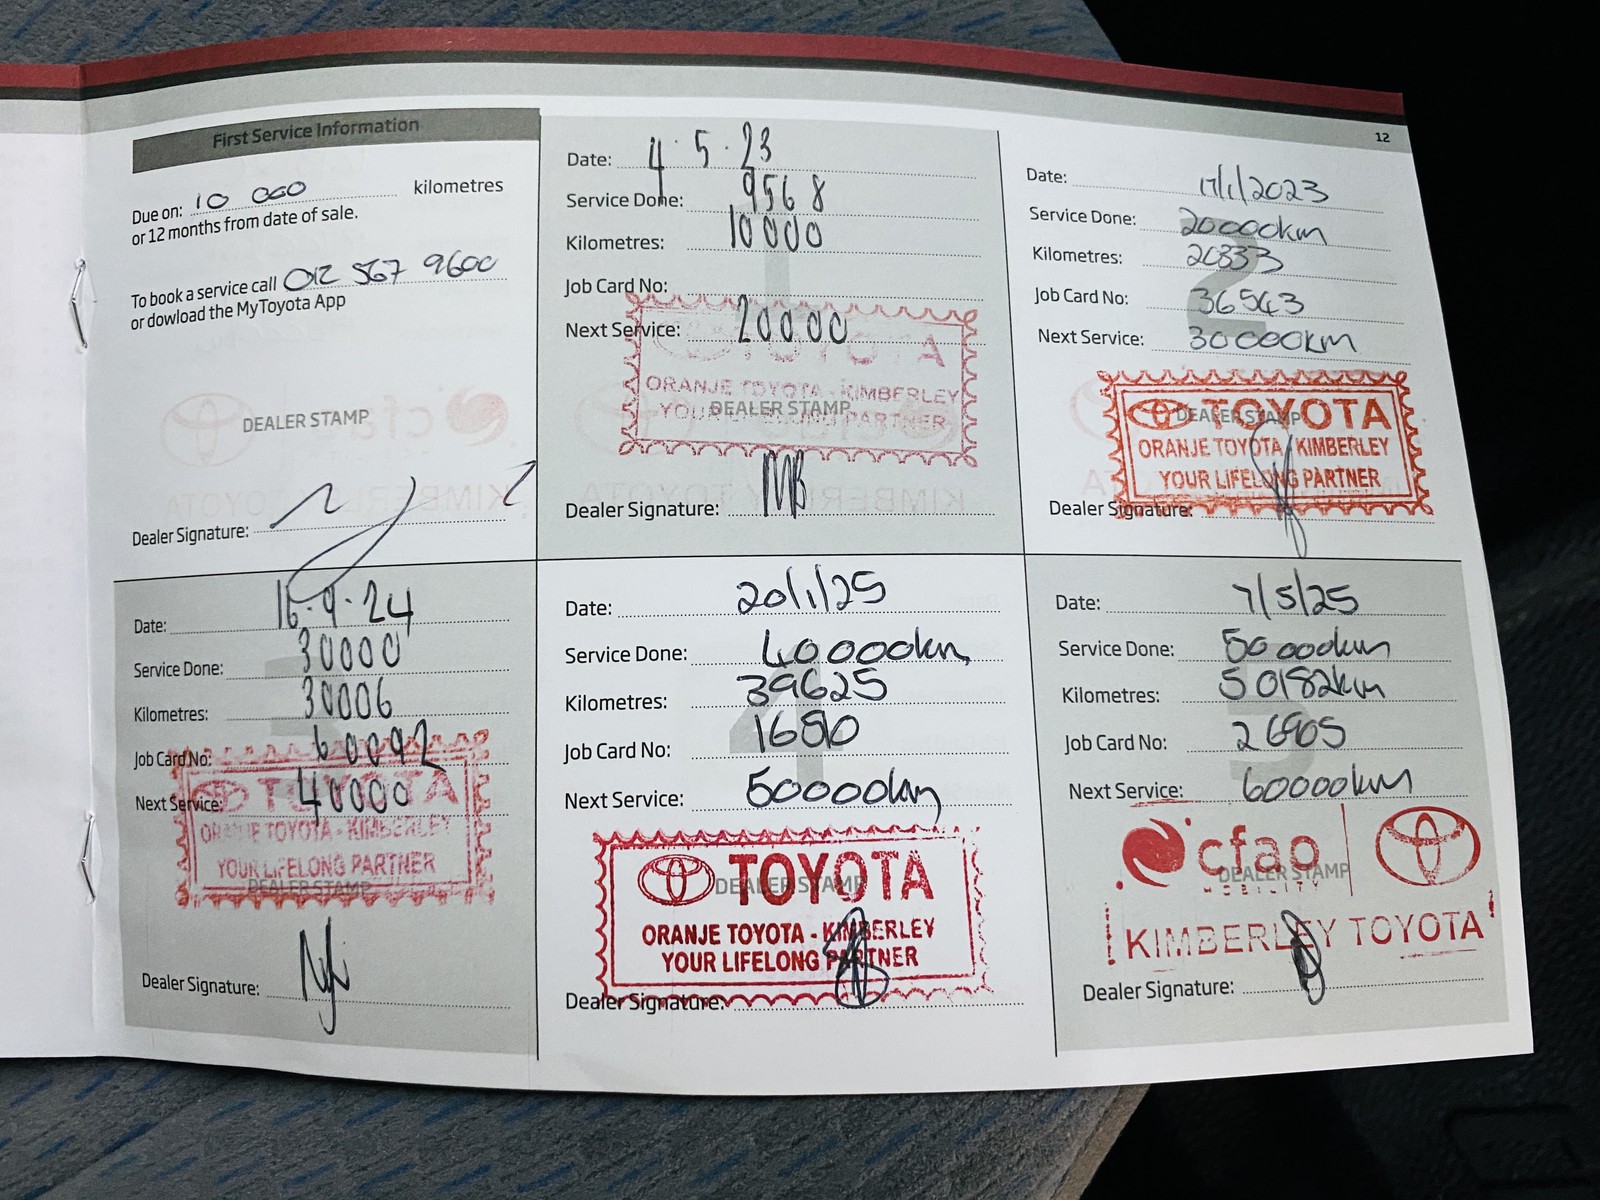 12
First Service Information
Due on: 10 000 kilometres
or 12 months from date of sale.
To book a service call 012 567 9600
or dowload the MyToyota App
DEALER STAMP
Dealer Signature:
Date: 4.5.23
Service Done: 9568
Kilometres: 10000
Job Card No:
Next Service: 20000
TOYOTA
ORANJE TOYOTA - KIMBERLEY
YOUR LIFELONG PARTNER
DEALER STAMP
Dealer Signature:
2
Date: 17/1/2023
Service Done: 20000km
Kilometres: 20333
Job Card No: 36543
Next Service: 30000km
TOYOTA
DEALER STAMP
ORANJE TOYOTA / KIMBERLEY
YOUR LIFELONG PARTNER
Dealer Signature:
Date: 16.9.24
Service Done: 30000
Kilometres: 30006
Job Card No: 60092
Next Service: 40000
TOYOTA
ORANJE TOYOTA - KIMBERLEY
YOUR LIFELONG PARTNER
DEALER STAMP
Dealer Signature:
4
Date: 20/1/25
Service Done: 40000km
Kilometres: 39625
Job Card No:
Next Service: 50000km
TOYOTA
DEALER STAMP
ORANJE TOYOTA - KIMBERLEY
YOUR LIFELONG PARTNER
Dealer Signature:
5
Date: 7/5/25
Service Done: 50000km
Kilometres: 50182km
Job Card No: 26905
Next Service: 60000km
cfao
MOBILITY
DEALER STAMP
KIMBERLEY TOYOTA
Dealer Signature: